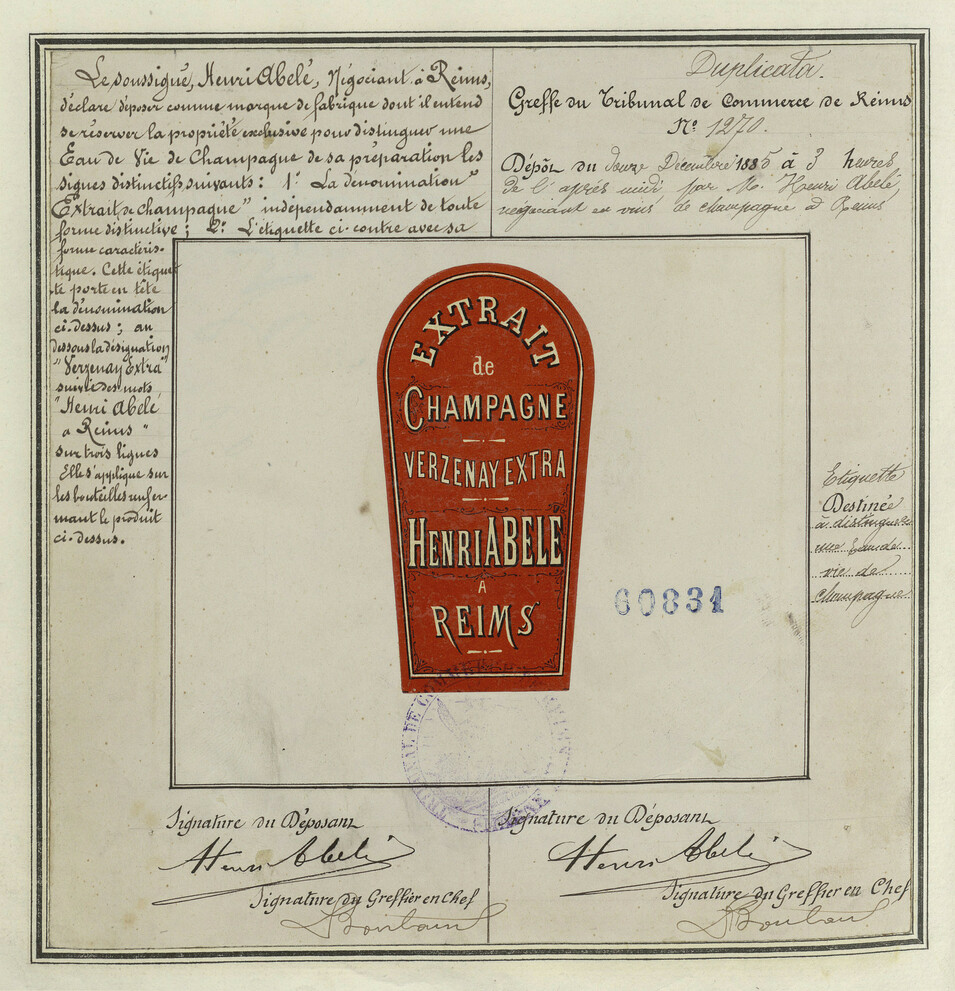 Le soussigné, Henri Abelé, Négociant à Reims,
déclare déposer comme marque de fabrique dont il entend
se réserver la propriété exclusive pour distinguer une
Eau de Vie de Champagne de sa préparation les
signes distinctifs suivants : 1º La dénomination "
Extrait de Champagne" indépendamment de toute
forme distinctive ; 2º L'étiquette ci-contre avec sa
forme caractéris-
tique. Cette étiquet
te porte en tête
la dénomination
ci-dessus ; au
dessous la désignation
"Verzenay Extra"
suivie des mots
"Henri Abelé
à Reims"
sur trois lignes
Elle s'applique sur
les bouteilles renfer-
mant le produit
ci-dessus.
Duplicata.
Greffe du Tribunal de Commerce de Reims
Nº 1270.
Dépôt du douze Décembre 1885 à 3 heures
de l'après midi par M. Henri Abelé,
négociant en vins de champagne à Reims
EXTRAIT
de
CHAMPAGNE
VERZENAY EXTRA
HENRI ABELÉ
A
REIMS
60831
Etiquette
Destinée
à distinguer
une Eau de
vie de
Champagne
TRIBUNAL DE COMMERCE
Signature du Déposant
Henri Abelé
Signature du Greffier en Chef
Signature du Déposant
Henri Abelé
Signature du Greffier en Chef